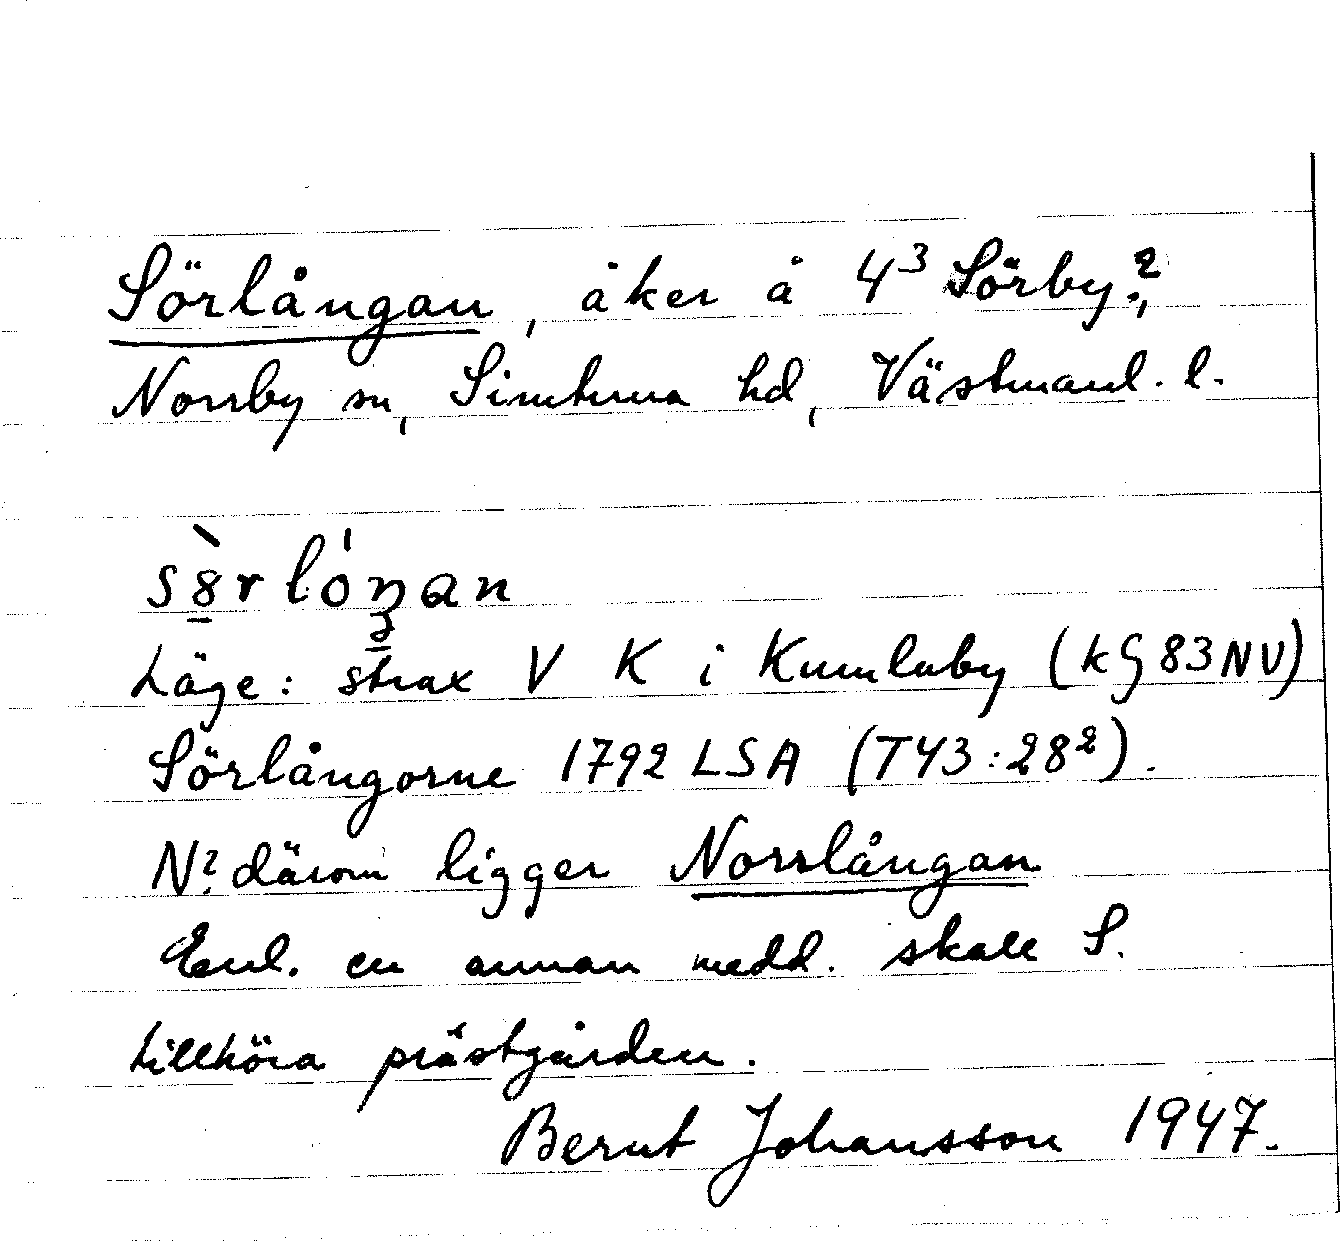 Sörlångan, åker å 4³ Sörby?,
Norrby sn, Simtuna hd, Västmanl. l.
sörlóŋan
Läge: strax V K i Kumlaby (kG 83NV)
Sörlångorne 1792 LSA (T43:28²).
N? därom ligger Norrlångan
Enl. en annan medd. skall S.
tillhöra prästgården.
Bernt Johansson 1947.